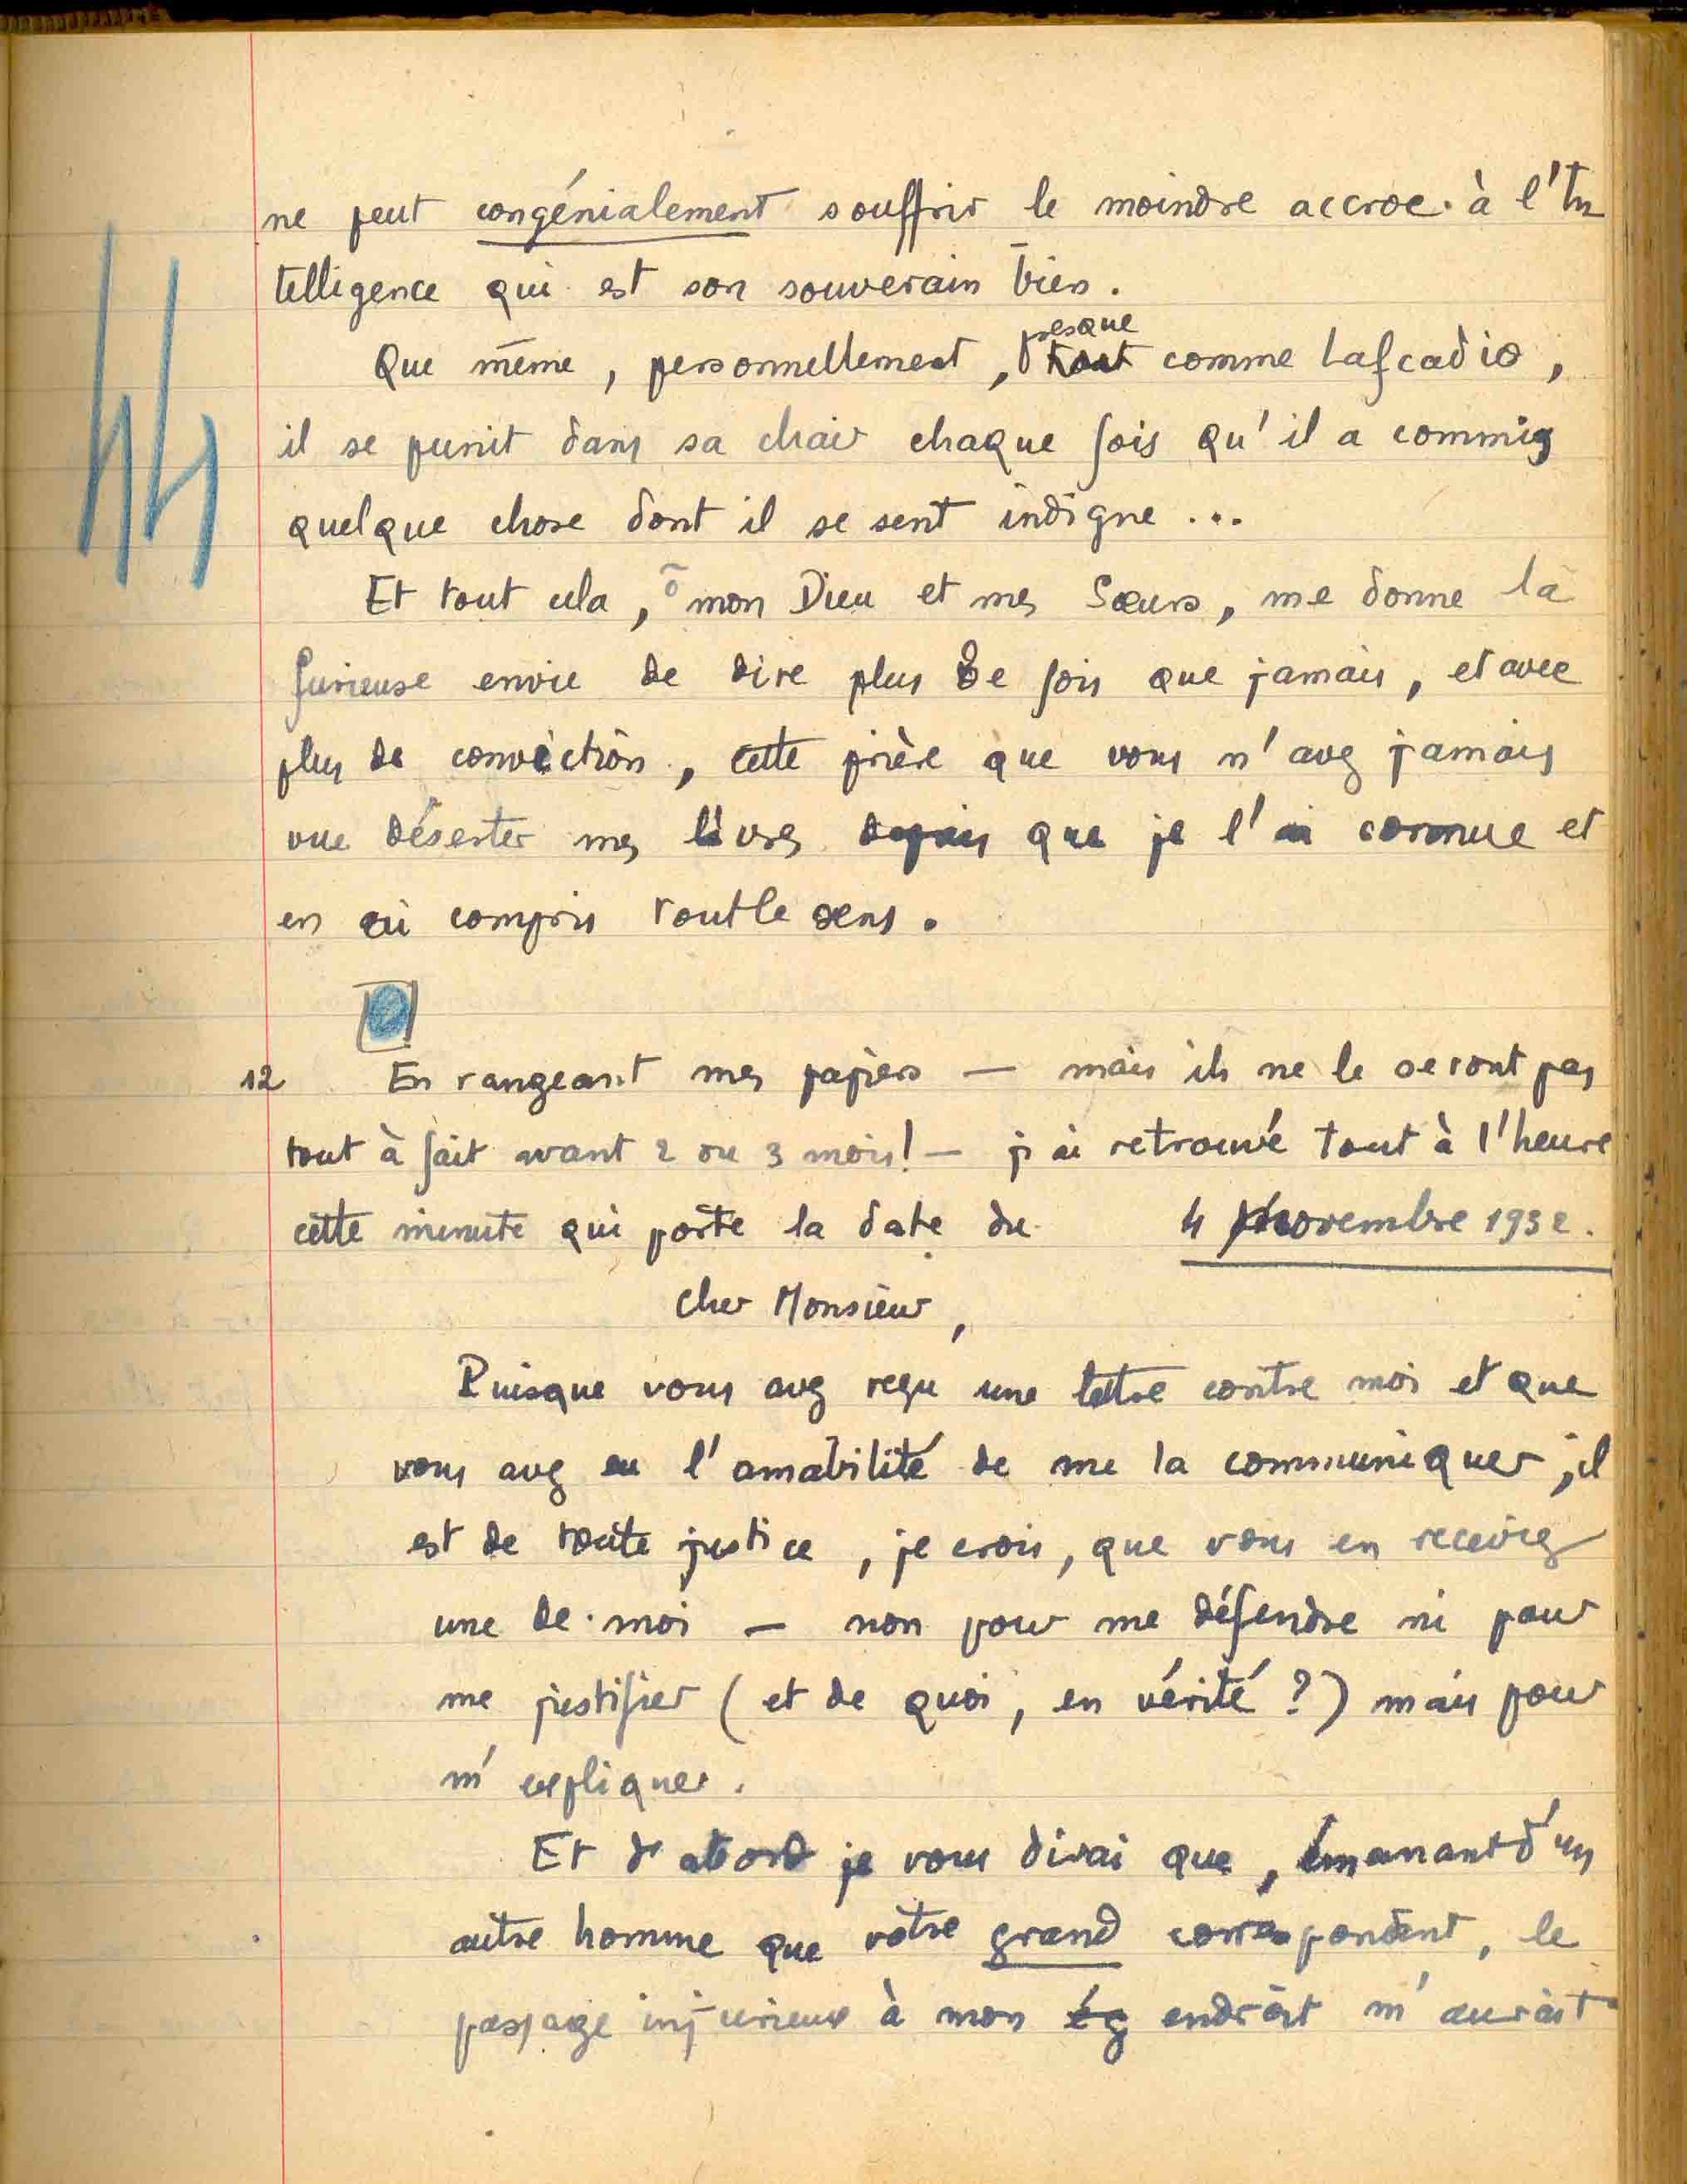 ne peut congénialement souffrir le moindre accroc à l'In
telligence qui est son souverain bien.
Que même, personnellement, presque tout comme Lafcadio,
il se punit dans sa chair chaque fois qu'il a commis
quelque chose dont il se sent indigne ...
Et tout cela, ô mon Dieu et mes Sœurs, me donne la
furieuse envie de dire plus de fois que jamais, et avec
plus de conviction, cette prière que vous n'avez jamais
vue déserter mes lèvres depuis que je l'ai connue et
en ai compris tout le sens.
44
12 En rangeant mes papiers — mais ils ne le seront pas
tout à fait avant 2 ou 3 mois! — j'ai retrouvé tout à l'heure
cette minute qui porte la date du 4 novembre 1932.
Cher Monsieur,
Puisque vous avez reçu une lettre contre moi et que
vous avez eu l'amabilité de me la communiquer, il
est de toute justice, je crois, que vous en receviez
une de moi — non pour me défendre ni pour
me justifier (et de quoi, en vérité?) mais pour
m'expliquer.
Et d'abord je vous dirai que, émanant d'un
autre homme que votre grand correspondant, le
passage injurieux à mon ég endroit m'aurait